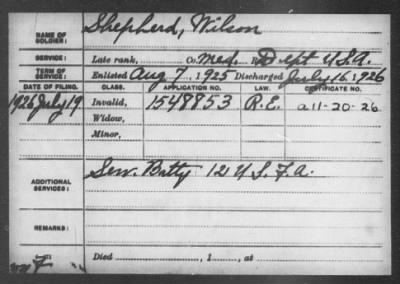 NAME OF SOLDIER: Shepherd, Wilson
SERVICE: Late rank, Co. Med. Dept U.S.A.
TERM OF SERVICE: Enlisted Aug 7, 1925 Discharged July 16, 1926
DATE OF FILING. CLASS. APPLICATION NO. LAW. CERTIFICATE NO.
1926 July 19 Invalid, 1548853 R.E. a 11-20-26
Widow,
Minor,
ADDITIONAL SERVICES: Serv. Batty 12 U.S.F.A.
REMARKS:
Died , 1 , at